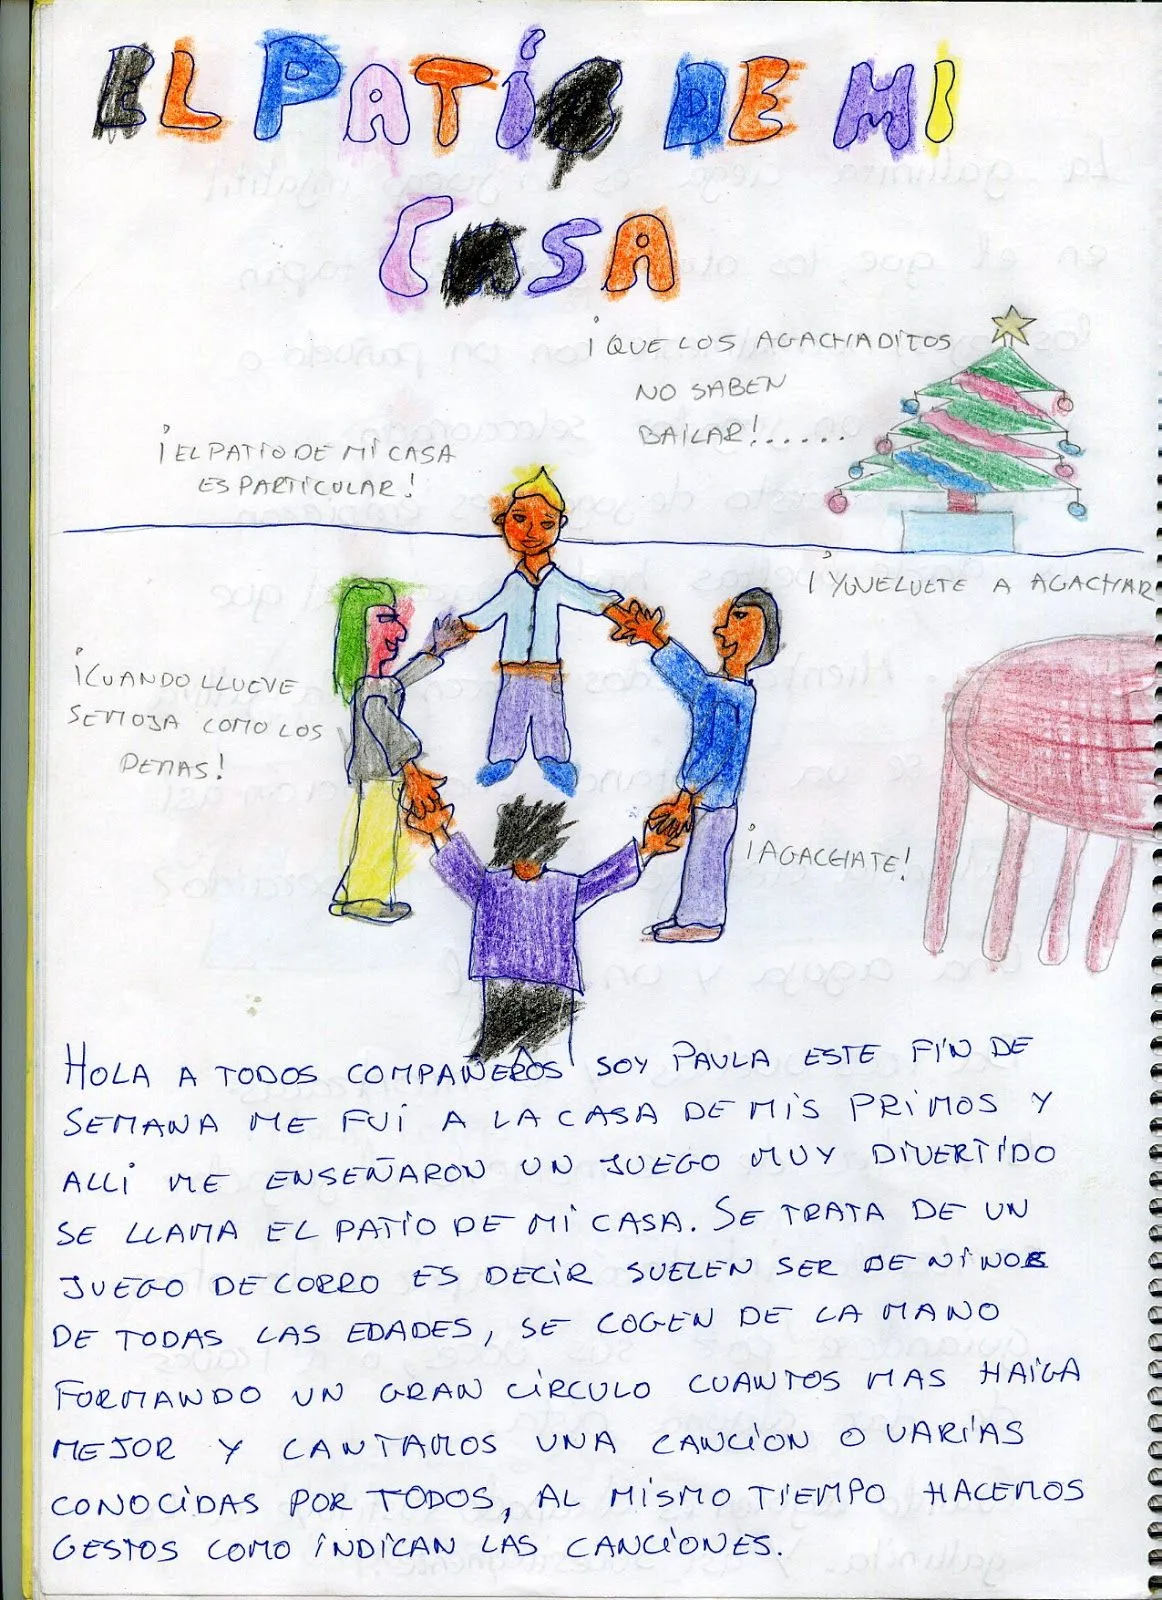 EL PATÍO DE MI
CASA
¡QUE LOS AGACHADITOS
NO SABEN
BAILAR!.....
¡EL PATIO DE MI CASA
ES PARTICULAR!
¡Y VUELVETE A AGACHAR
¡CUANDO LLUEVE
SE MOJA COMO LOS
DEMAS!
¡AGACHATE!
HOLA A TODOS COMPAÑEROS SOY PAULA ESTE FIN DE
SEMANA ME FUI A LA CASA DE MIS PRIMOS Y
ALLI ME ENSEÑARON UN JUEGO MUY DIVERTIDO
SE LLAMA EL PATIO DE MI CASA. SE TRATA DE UN
JUEGO DE CORRO ES DECIR SUELEN SER DE NIÑOS
DE TODAS LAS EDADES, SE COGEN DE LA MANO
FORMANDO UN GRAN CÍRCULO CUANTOS MAS HAIGA
MEJOR Y CANTAMOS UNA CANCIÓN O VARIAS
CONOCIDAS POR TODOS, AL MISMO TIEMPO HACEMOS
GESTOS COMO INDICAN LAS CANCIONES.